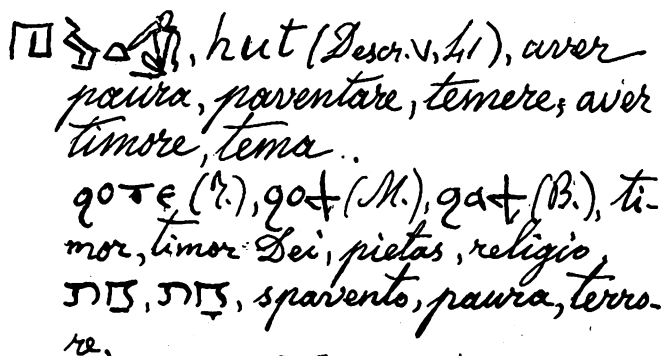 hut (Descr. V, 41), aver
paura, paventare, temere, aver
timore, tema..
ϩⲟⲧⲉ (T.), ϩⲟϯ (M.), ϩⲁϯ (B.), ti-
mor, timor Dei, pietas, religio,
חת, חַת, spavento, paura, terro-
re,